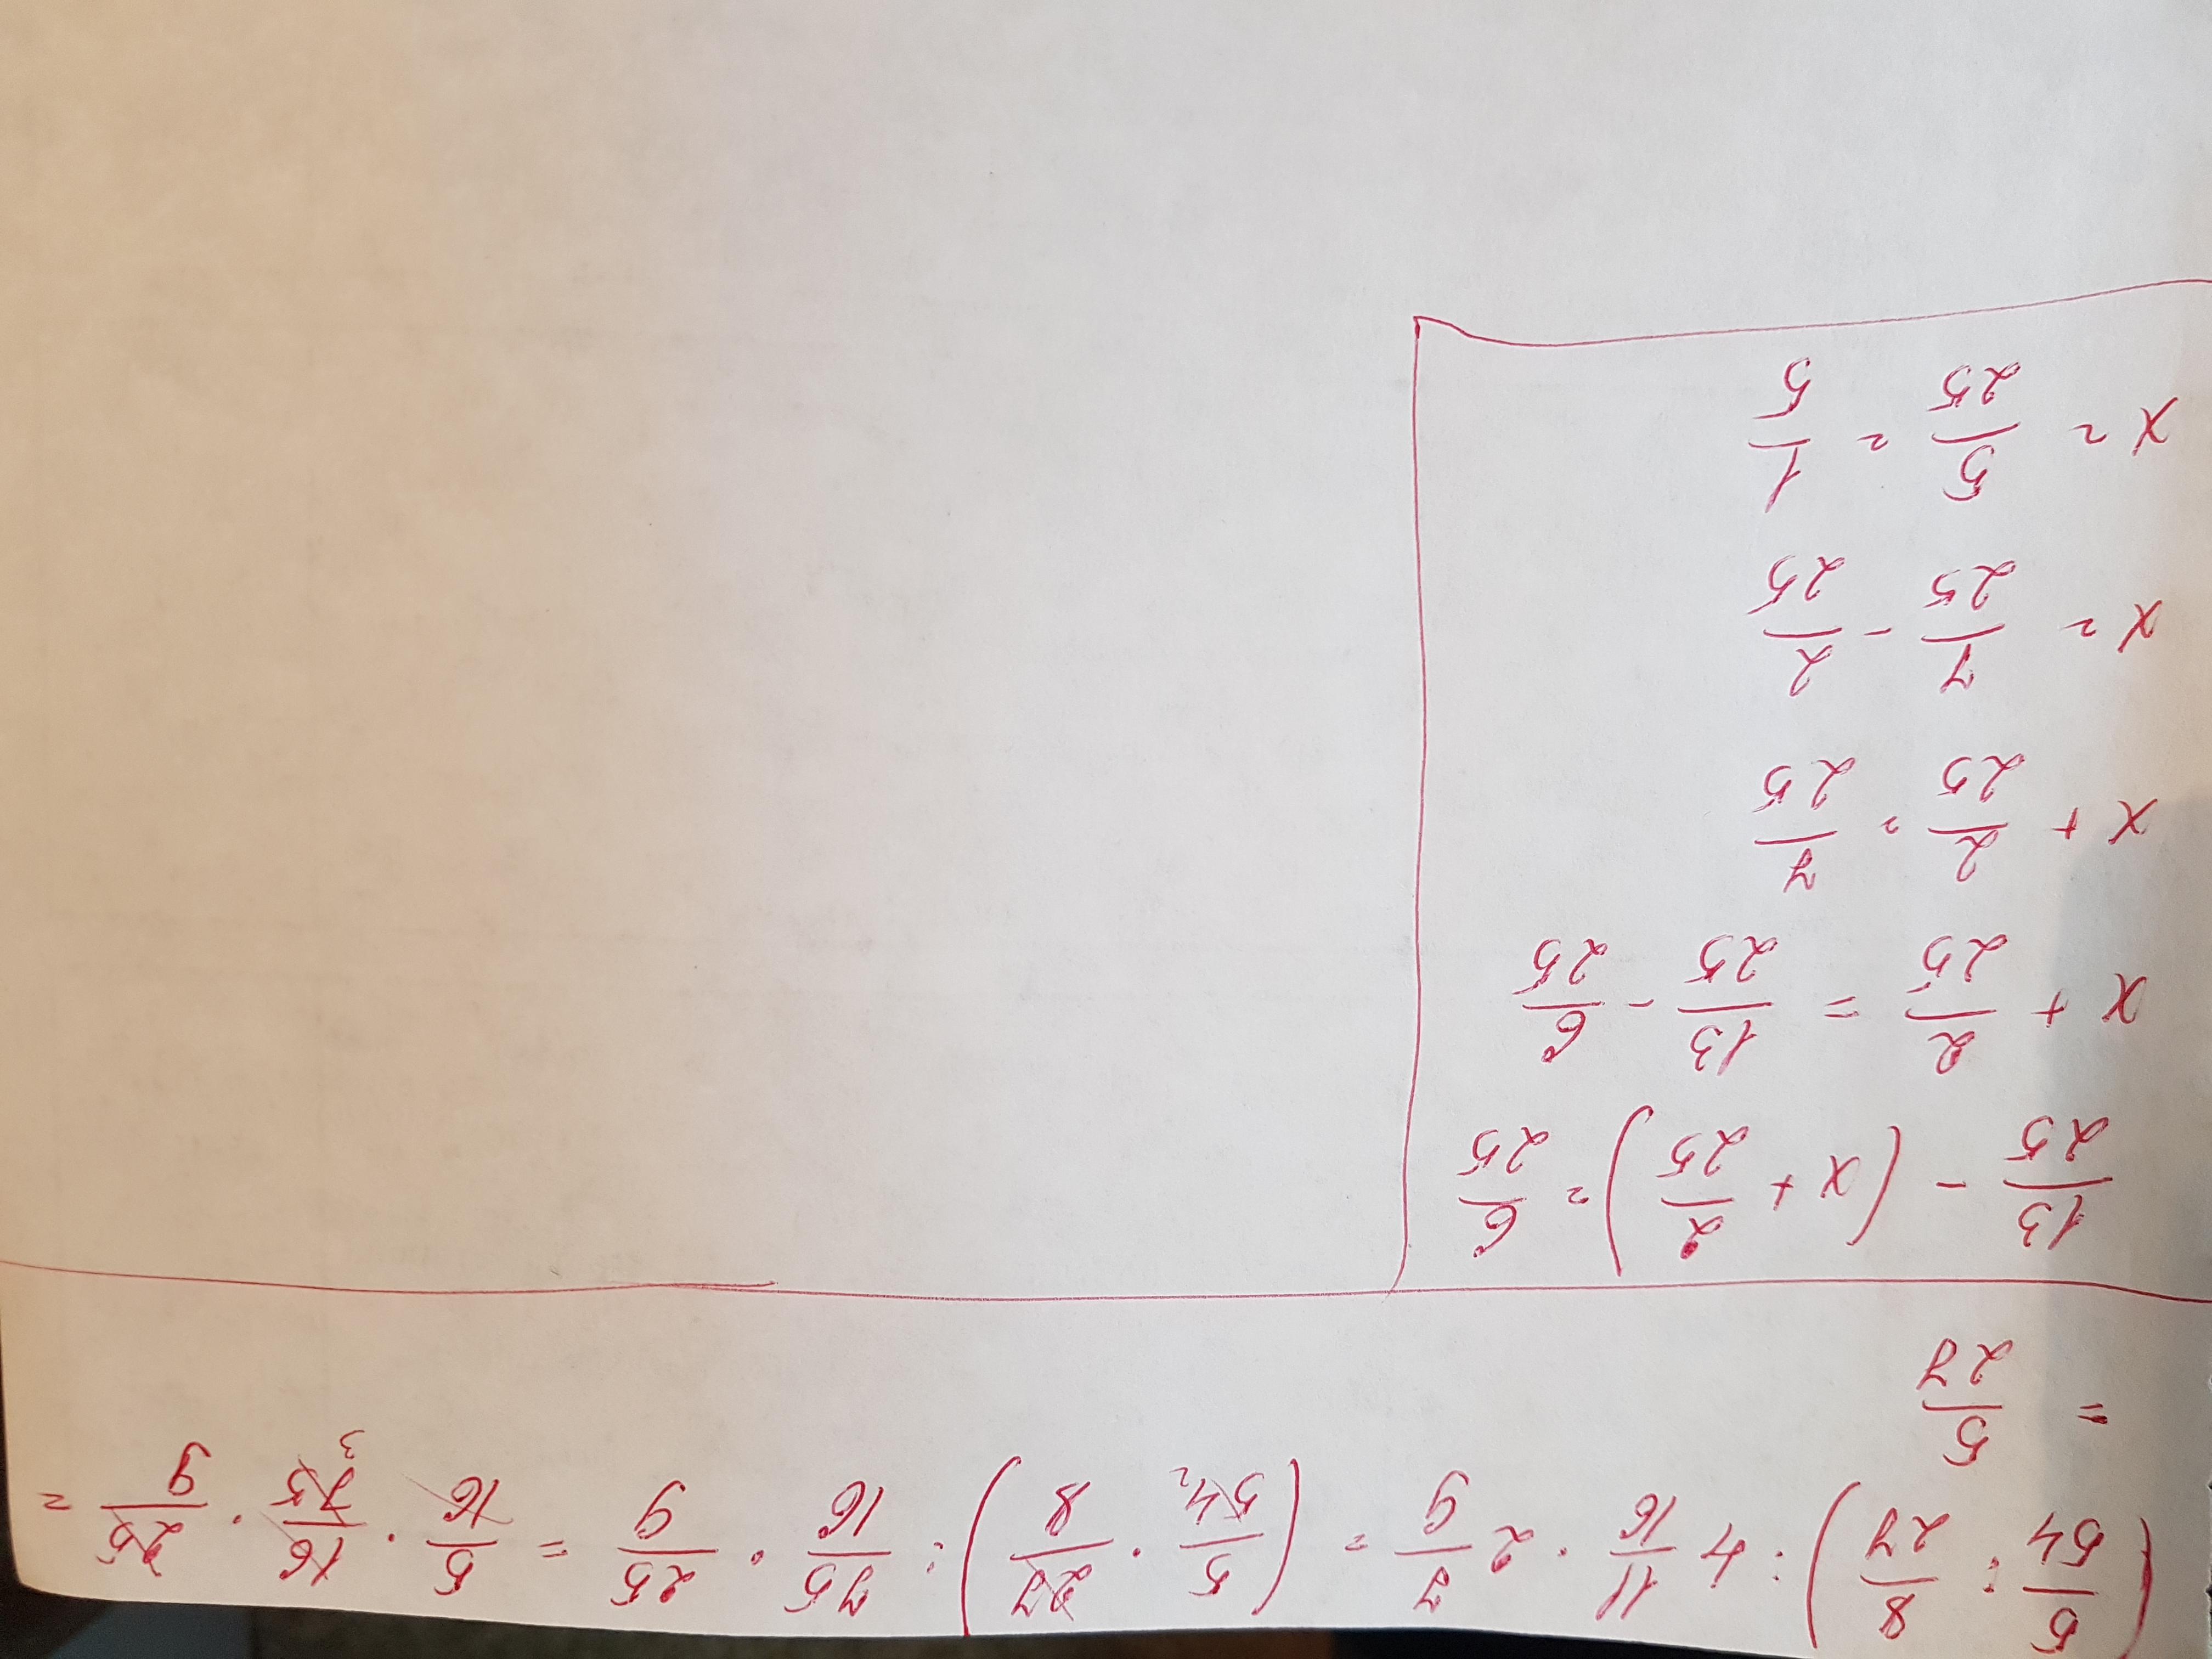 (5/54 : 8/27) : 4 11/16 · 2 7/9 = (5/54₂ · 27/8) : 75/16 · 25/9 = 5/16 · 16/75₃ · 25/9 =
= 5/27
13/25 - (x + 2/25) = 6/25
x + 2/25 = 13/25 - 6/25
x + 2/25 = 7/25
x = 7/25 - 2/25
x = 5/25 = 1/5